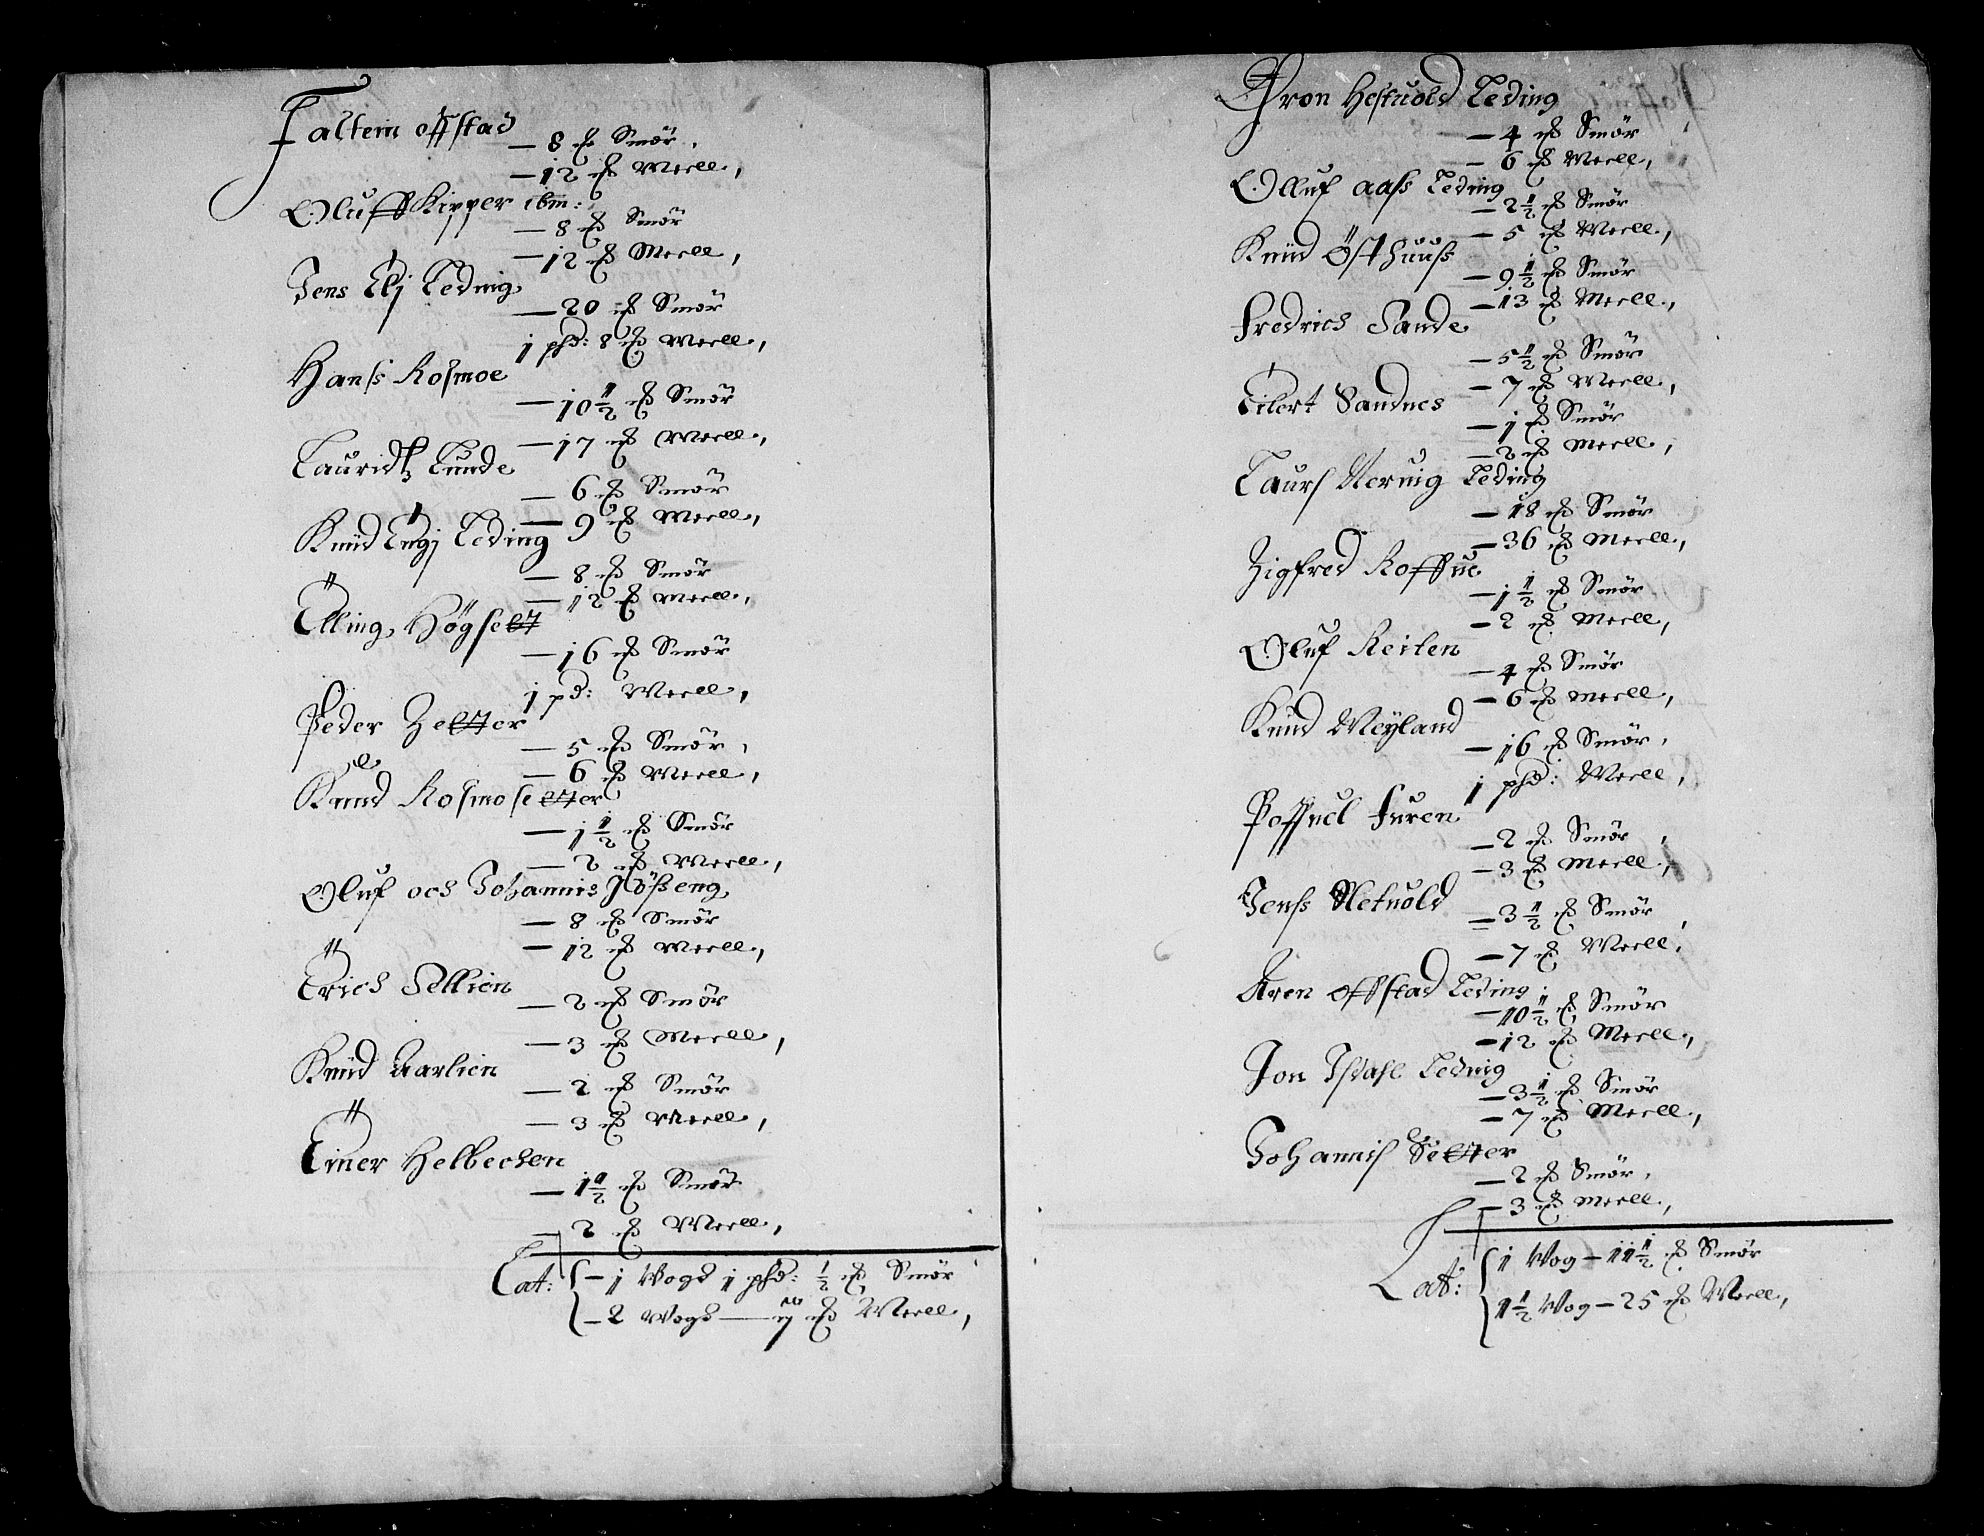 Faltein offstad
— 8 ℔ Smör,
— 12 ℔ Meell,
Oluff Kipper ibm:
— 8 ℔ Smör
— 12 ℔ Meell,
Jens Elj Leding
— 20 ℔ Smör
1 phd: 8 ℔ Meell,
Hanss Rosmoe
— 10 1/2 ℔ Smör
— 17 ℔ Meell,
Lauridtz Lunde
— 6 ℔ Smör
— 9 ℔ Meell,
Knud Engj Leding
— 8 ℔ Smör
— 12 ℔ Meell,
Elling Högseter
— 16 ℔ Smör
1 pd: Meell,
Peder Zetter
— 5 ℔ Smör,
— 6 ℔ Meell,
Knud Rosmosetter
— 1 1/2 ℔ Smör
— 2 ℔ Meell,
Oluf och Johannis Jösseng
— 8 ℔ Smör
— 12 ℔ Meell,
Erich Sellien
— 2 ℔ Smör
— 3 ℔ Meell,
Knud Aarlien
— 2 ℔ Smör
— 3 ℔ Meell,
Einer Helbechen
— 1 1/2 ℔ Smör
— 2 ℔ Meell,
Lat: — 1 Wogd 1 phd: 1/2 ℔ Smör
— 2 Wogd — 7 ℔ Meell,
Gron Hestuold Leding
— 4 ℔ Smör
— 6 ℔ Meell,
Olluf aass Leding
— 2 1/2 ℔ Smör
— 5 ℔ Meell,
Knud Östhuuss
— 9 1/2 ℔ Smör
— 13 ℔ Meell,
Fredrich Sande
— 5 1/2 ℔ Smör
— 7 ℔ Meell,
Eilert Sandnes
— 1 ℔ Smör
— 2 ℔ Meell,
Laurs Neruig Leding
— 18 ℔ Smör
— 36 ℔ Meell,
Zigfred Roffue
— 1 1/2 ℔ Smör
— 2 ℔ Meell,
Oluf Reiten
— 4 ℔ Smör
— 6 ℔ Meell,
Knud Meyland
— 16 ℔ Smör,
1 phd: Meell,
Possuel Furen
— 2 ℔ Smör
— 3 ℔ Meell,
Jenss Sletuold
— 3 1/2 ℔ Smör
— 7 ℔ Meell,
Aren offstad Leding
— 10 1/2 ℔ Smör
— 12 ℔ Meell,
Jon Isdahl Leding
— 3 1/2 ℔ Smör
— 7 ℔ Meell,
Johannis Setter
— 2 ℔ Smör,
— 3 ℔ Meell,
Lat: 1 Wog — 11 1/2 ℔ Smör
1 1/2 Wog — 25 ℔ Meell,